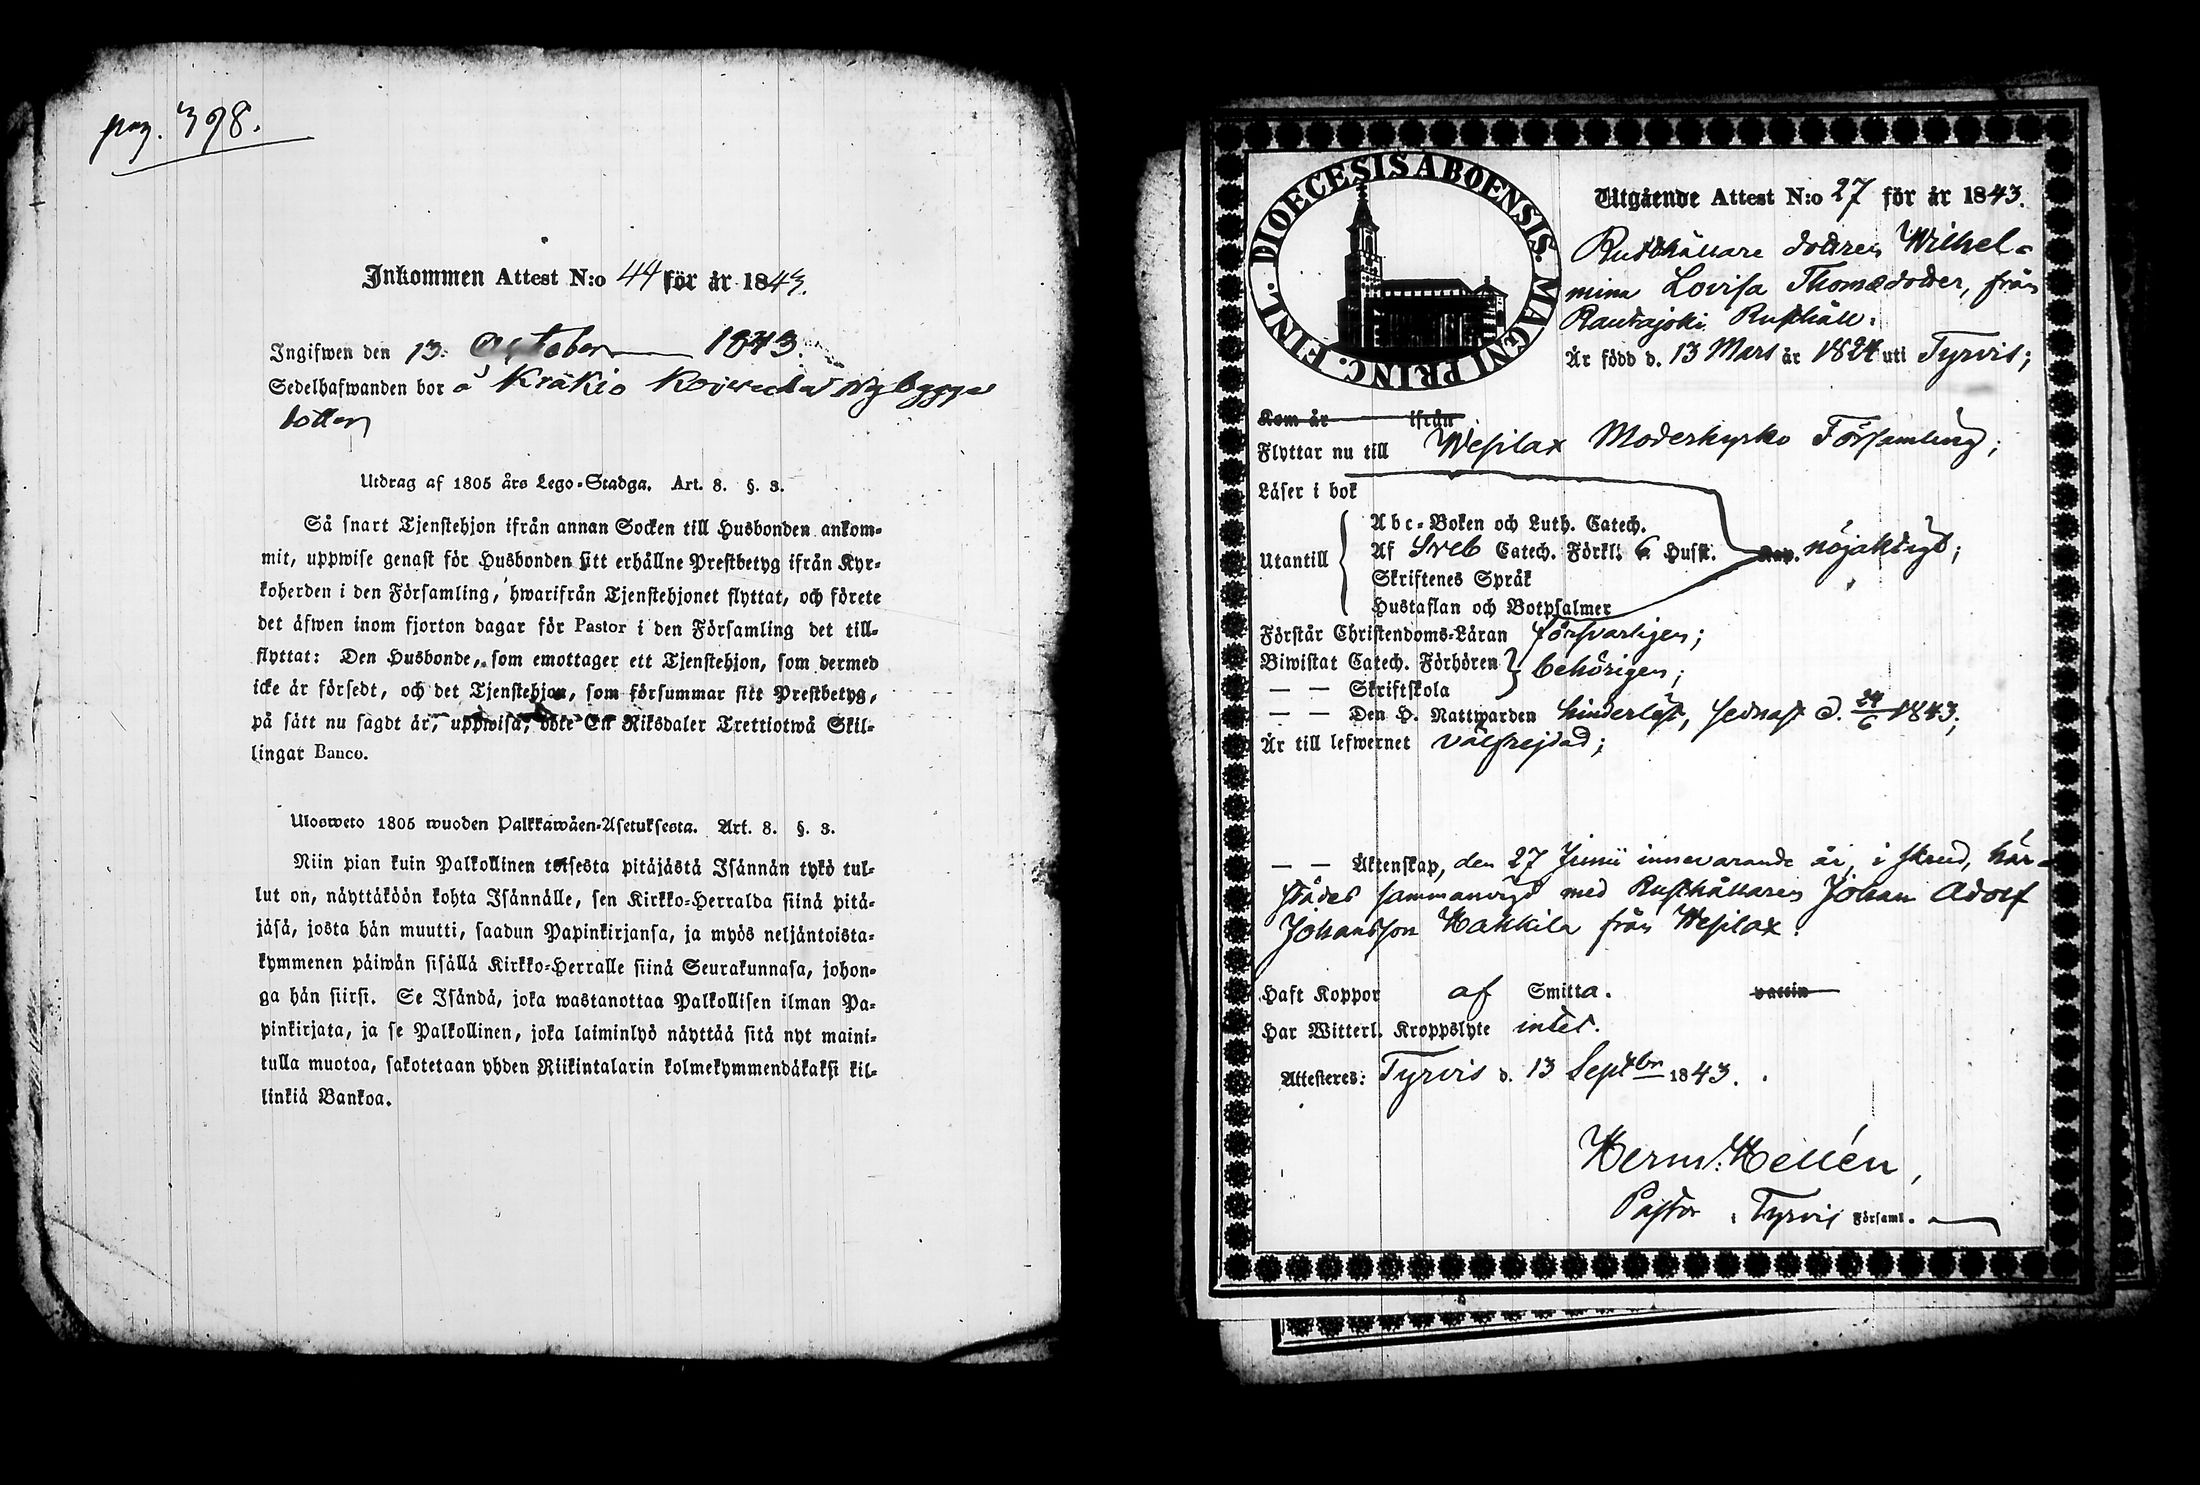 pag. 398.
Inkommen Attest N:o 44 för år 1843.
Ingifwen den 13. October 1843.
Sedelhafwanden bor å Kräkiö Nybygge
Utdrag af 1805 års Lego-Stadga. Art. 8. §. 3.
Så snart Tjenstehjon ifrån annan Socken till Husbonden ankom-
mit, uppwise genast för Husbonden sitt erhållne Prestbetyg ifrån Kyr-
koherden i den Församling, hwarifrån Tjenstehjonet flyttat, och förete
det äfwen inom fjorton dagar för Pastor i den Församling det till-
flyttat: Den Husbonde, som emottager ett Tjenstehjon, som dermed
icke är försedt, och det Tjenstehjon, som försummar sitt Prestbetyg,
på sätt nu sagdt är, uppwisa, böte Ett Riksdaler Trettiotwå Skil-
lingar Banco.
Ulosweto 1805 wuoden Palkkawäen-Asetuksesta. Art. 8. §. 3.
Niin pian kuin Palkollinen toisesta pitäjästä Isännän tykö tul-
lut on, näyttäköön kohta Isännälle, sen Kirkko-Herralda siinä pitä-
jäsä, josta hän muutti, saadun Papinkirjansa, ja myös neljäntoista-
kymmenen päiwän sisällä Kirkko-Herralle siinä Seurakunnasa, johon-
ga hän siirsi. Se Isändä, joka wastanottaa Palkollisen ilman Pa-
pinkirjata, ja se Palkollinen, joka laiminlyö näyttää sitä nyt maini-
tulla muotoa, sakotetaan yhden Riikintalarin kolmekymmendäkaksi kil-
linkiä Bankoa.
DIOECESIS ABOENSIS. MAGNI PRINC. FINL.
Utgående Attest N:o 27 för år 1843.
Rusthållare dottren Wilhel-
mina Lovisa Thomædotter, från
Rautajoki Rusthåll.
Är född d. 13 Mars år 1824 uti Tyrvis;
Kom år ifrån
Flyttar nu till Wesilax Moderkyrko Församling;
Läser i bok
Abc-Boken och Luth. Catech.
Utantill Af Sveb Catech. Förkl: Husst. Kap. nöjaktigt;
Skriftenes Språk
Hustaflan och Botpsalmer
Förstår Christendoms-Läran försvarligen;
Biwistat Catech. Förhören behörigen;
— — Skriftskola
— — Den H. Nattwarden hinderlöst, sednast d. 24/6 1843;
Är till lefwernet välfrejdad;
— — Äktenskap, den 27 Junii innevarande år, i skrud, här-
städes sammanvigd med Rusthållaren Johan Adolf
Johansson Hakkila från Wesilax.
Haft Koppor af Smitta. vaccin
Har Witterl. Kroppslyte intet.
Attesteres: Tyrvis d. 13 Septbr 1843.
Herm: Hellén,
Pastor i Tyrvis Församl.